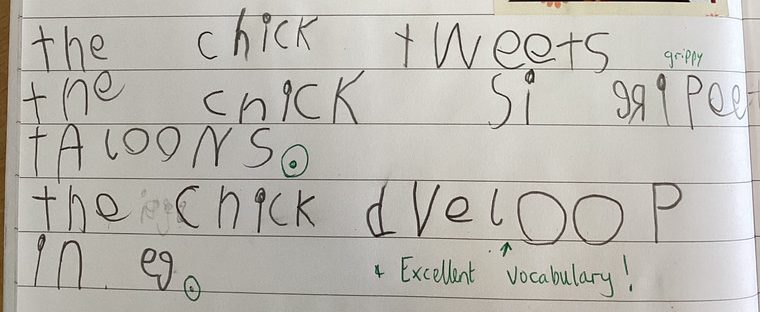 the chick tweets
grippy
the chick si gripee
tAloons.
the chick dveloop
in eg.
* Excellent vocabulary!